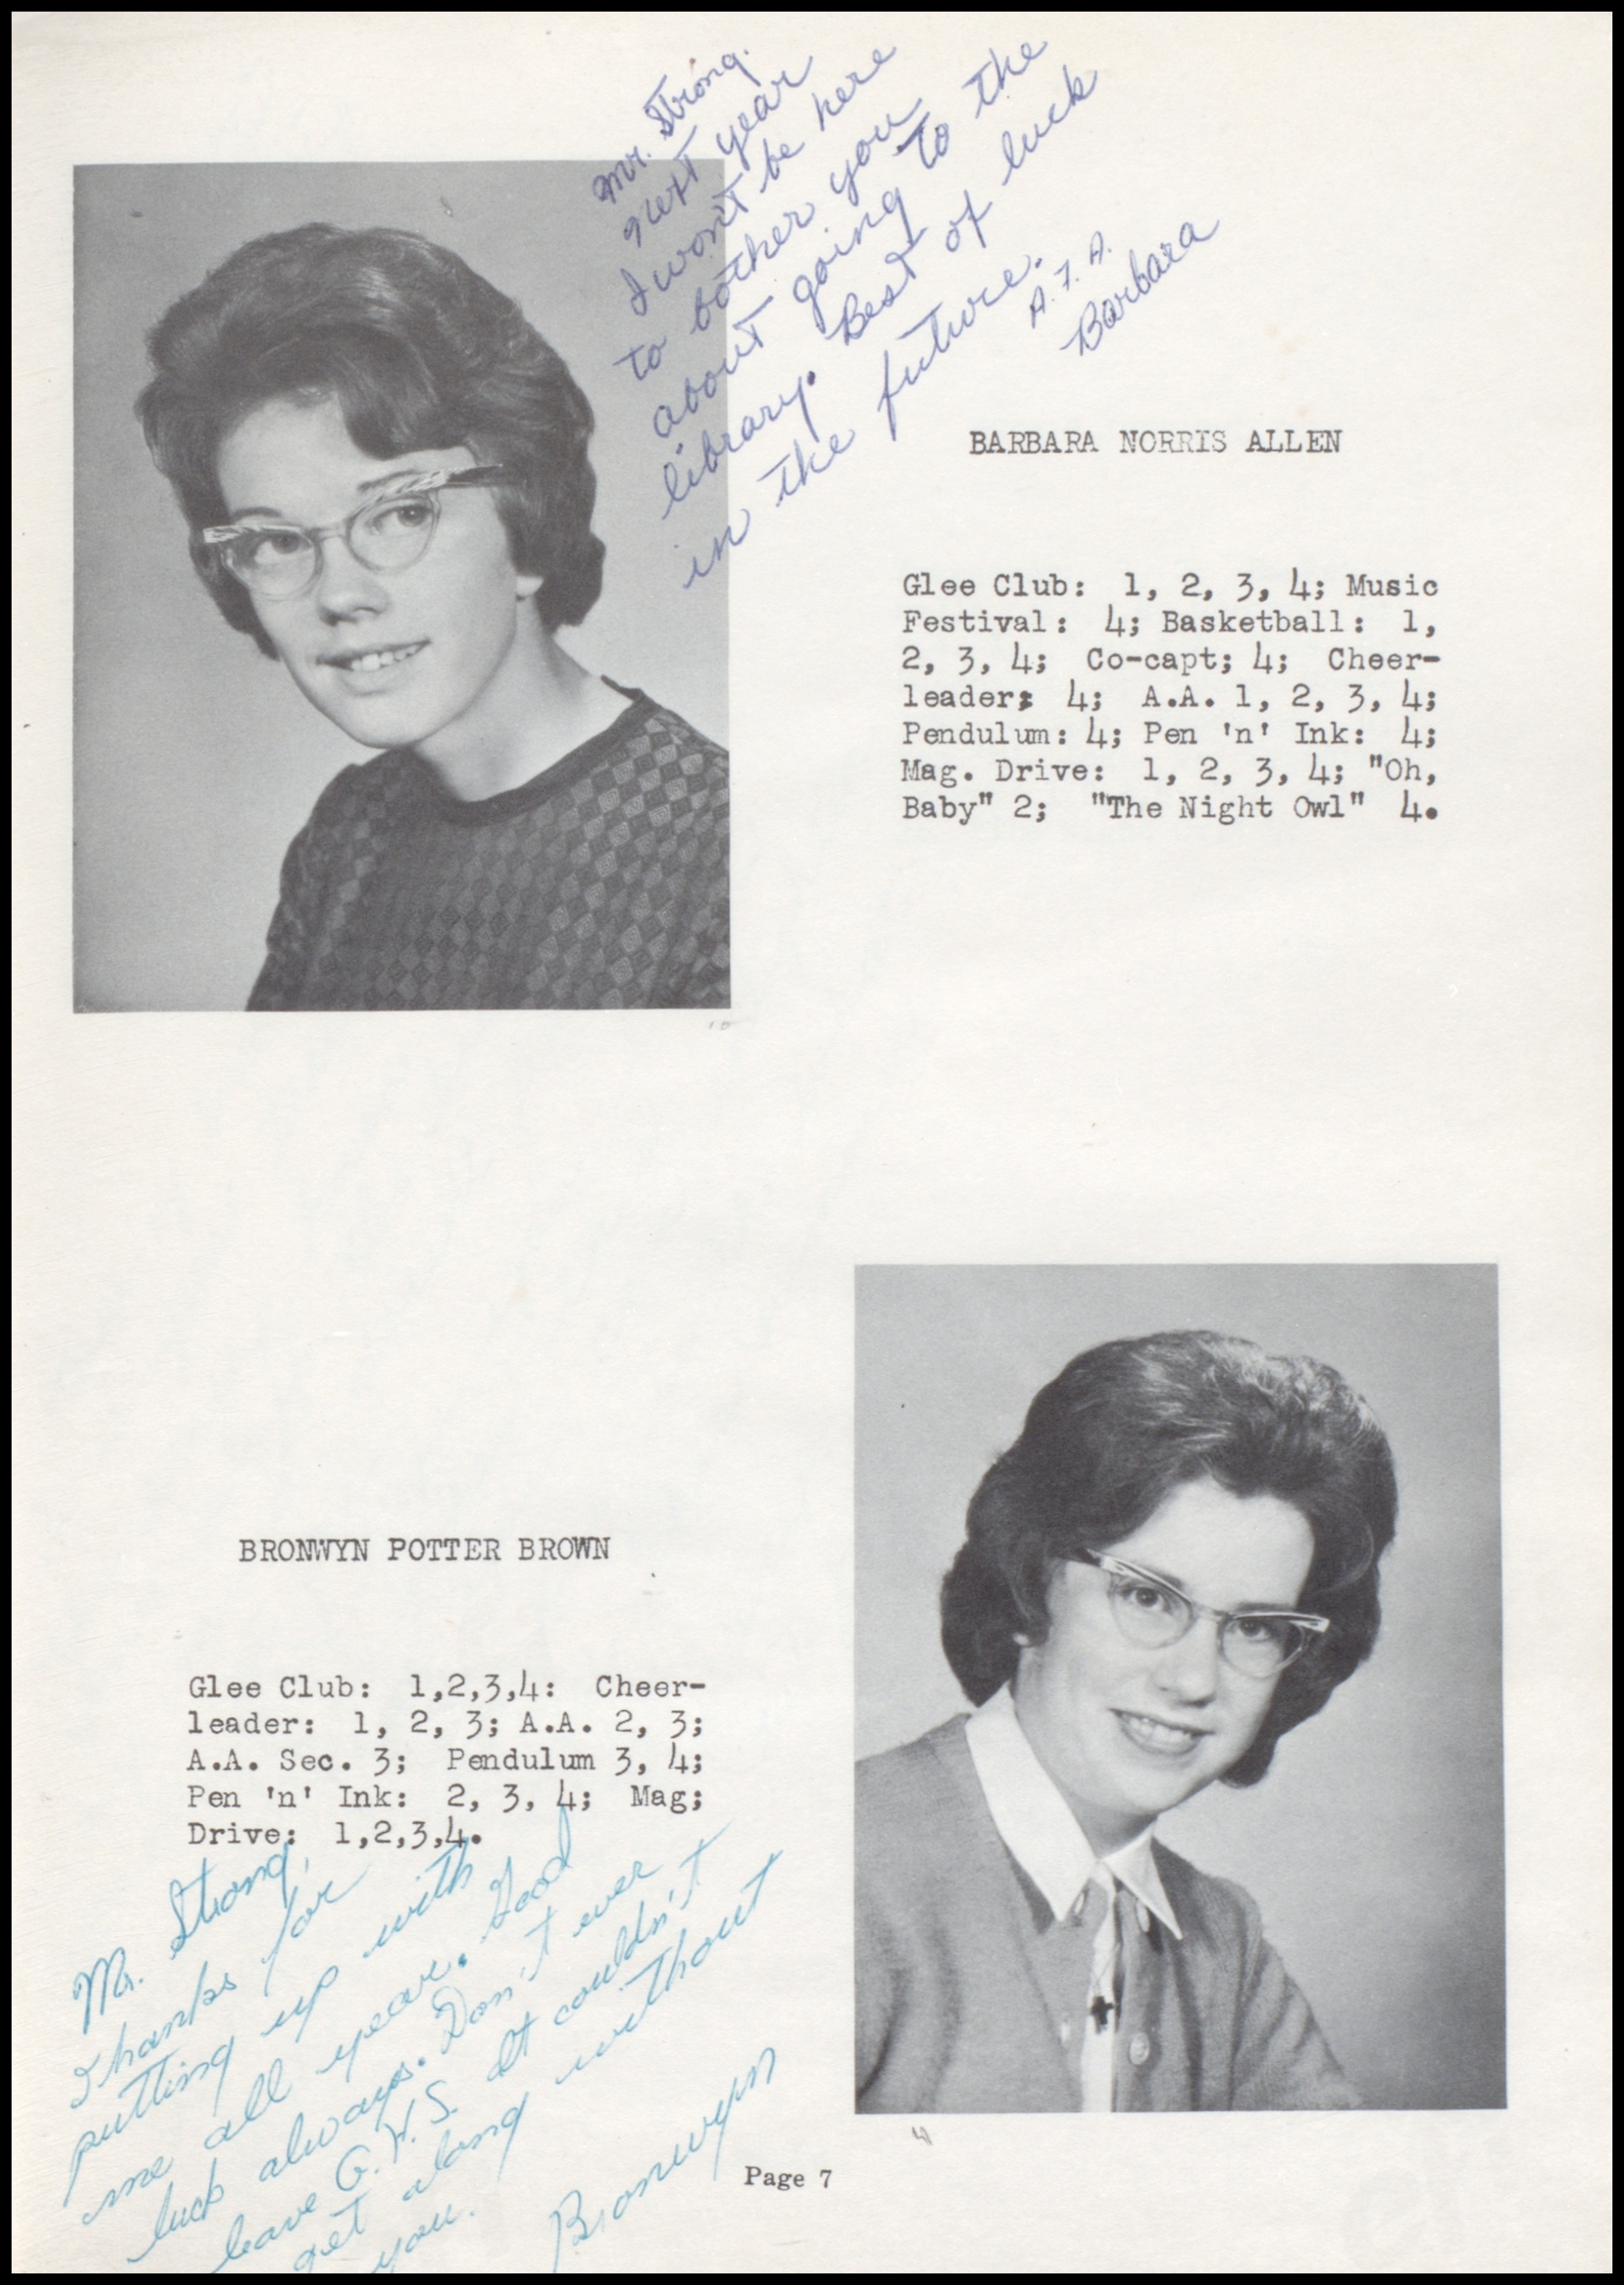 Mr. Strong.
Next year
I won't be here
to bother you
about going to the
library. Best of luck
in the future.
A. F. A.
Barbara
BARBARA NORRIS ALLEN
Glee Club: 1, 2, 3, 4; Music
Festival: 4; Basketball: 1,
2, 3, 4; Co-capt; 4; Cheer-
leader; 4; A.A. 1, 2, 3, 4;
Pendulum: 4; Pen 'n' Ink: 4;
Mag. Drive: 1, 2, 3, 4; "Oh,
Baby" 2; "The Night Owl" 4.
BRONWYN POTTER BROWN
Glee Club: 1,2,3,4: Cheer-
leader: 1, 2, 3; A.A. 2, 3;
A.A. Sec. 3; Pendulum 3, 4;
Pen 'n' Ink: 2, 3, 4; Mag;
Drive: 1,2,3,4.
Mr. Strong,
Thanks for
putting up with
me all year. Good
luck always. Don't ever
leave G.H.S. It couldn't
get along without
you.
Bronwyn
Page 7